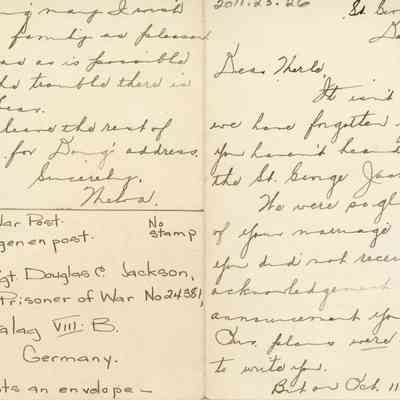 may I wish
family as pleasant
as is possible
the trouble there is
leave the rest of
for Doug's address.
Sincerely,
Thelva.
War Post.
No
stamp
gen en post.
Sgt Douglas C. Jackson,
Prisoner of War No 24381,
alag VIII B.
Germany.
an envelope –
2011.23.26
St. Geo
Dear Merle
It isn't
we have forgotten
you haven't hear
the St. George Jac
We were so gl
of your marriage
you did not recei
acknowledgement
announcement you
Our plans were
to write you.
But on Oct. 11